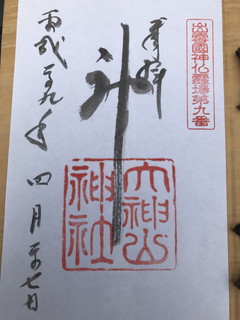 出雲國神仏霊場第九番
奉拝
大神山
神社
平成廿九年四月廿七日